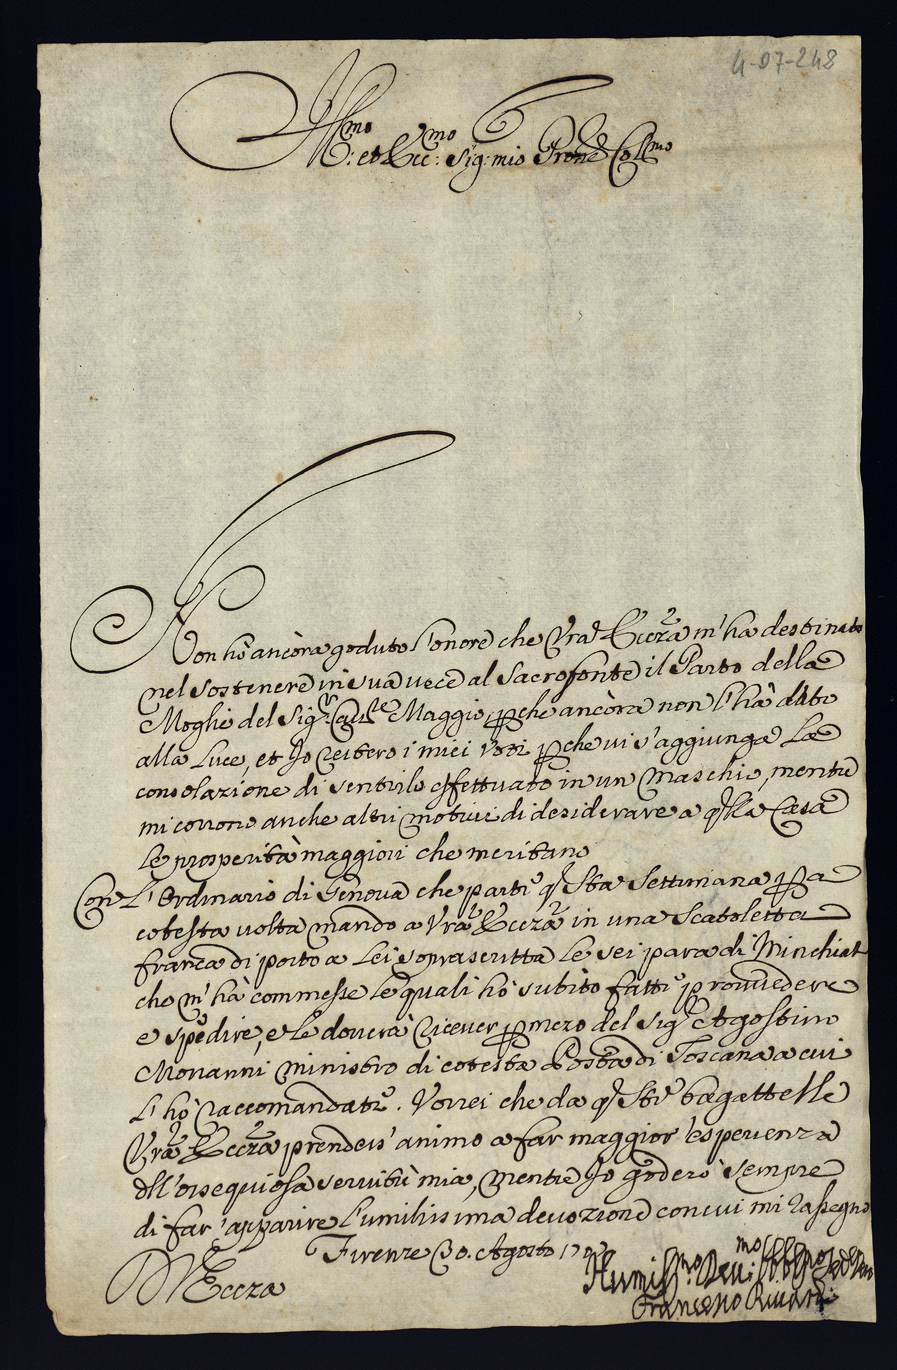 4-07-248
Ill:mo et Ecc:mo Sig: mio Prone Coll:mo
Non hò ancòra goduto l'onore che Vra Eccza m'ha destinato
nel sostenere in sua vece al Sacrofonte il Parto della
Moglie del Sigr Cau:re Maggio, pche ancòra non l'hà dato
alla Luce, et Io reitero i miei Voti pche vi s'aggiunga La
consolazione di sentirlo effettuato in un Maschio, mentre
mi corrono anche altri motivi di desiderare a qlla Casa
le prosperità maggiori che meritano
Con L'Ordinario di Genova che partì qsta Settimana p a
cotesta volta mando a Vra Eccza in una Scatoletta
franca di porto a Lei soprascritta le sei para di Minchiate
che m'hà commesse le quali hò subito fatte provvedere
e spedire, e le dourà ricever p mezo del Sigr Agostino
Monanni Ministro di cotesta Posta di Toscana a cui
l'hò raccomandate. Vorrei che da qste bagattelle
Vra Eccza prendess' animo a far maggior esperienza
dll'ossequiosa servitù mia, mentre Io goderò sempre
di far apparire l'umilissima devozione con cui mi rassegno
D V Eccza Firenze 30. Agosto
Humilmo Deu:mo Obbl:mo
Francesco Riccardi